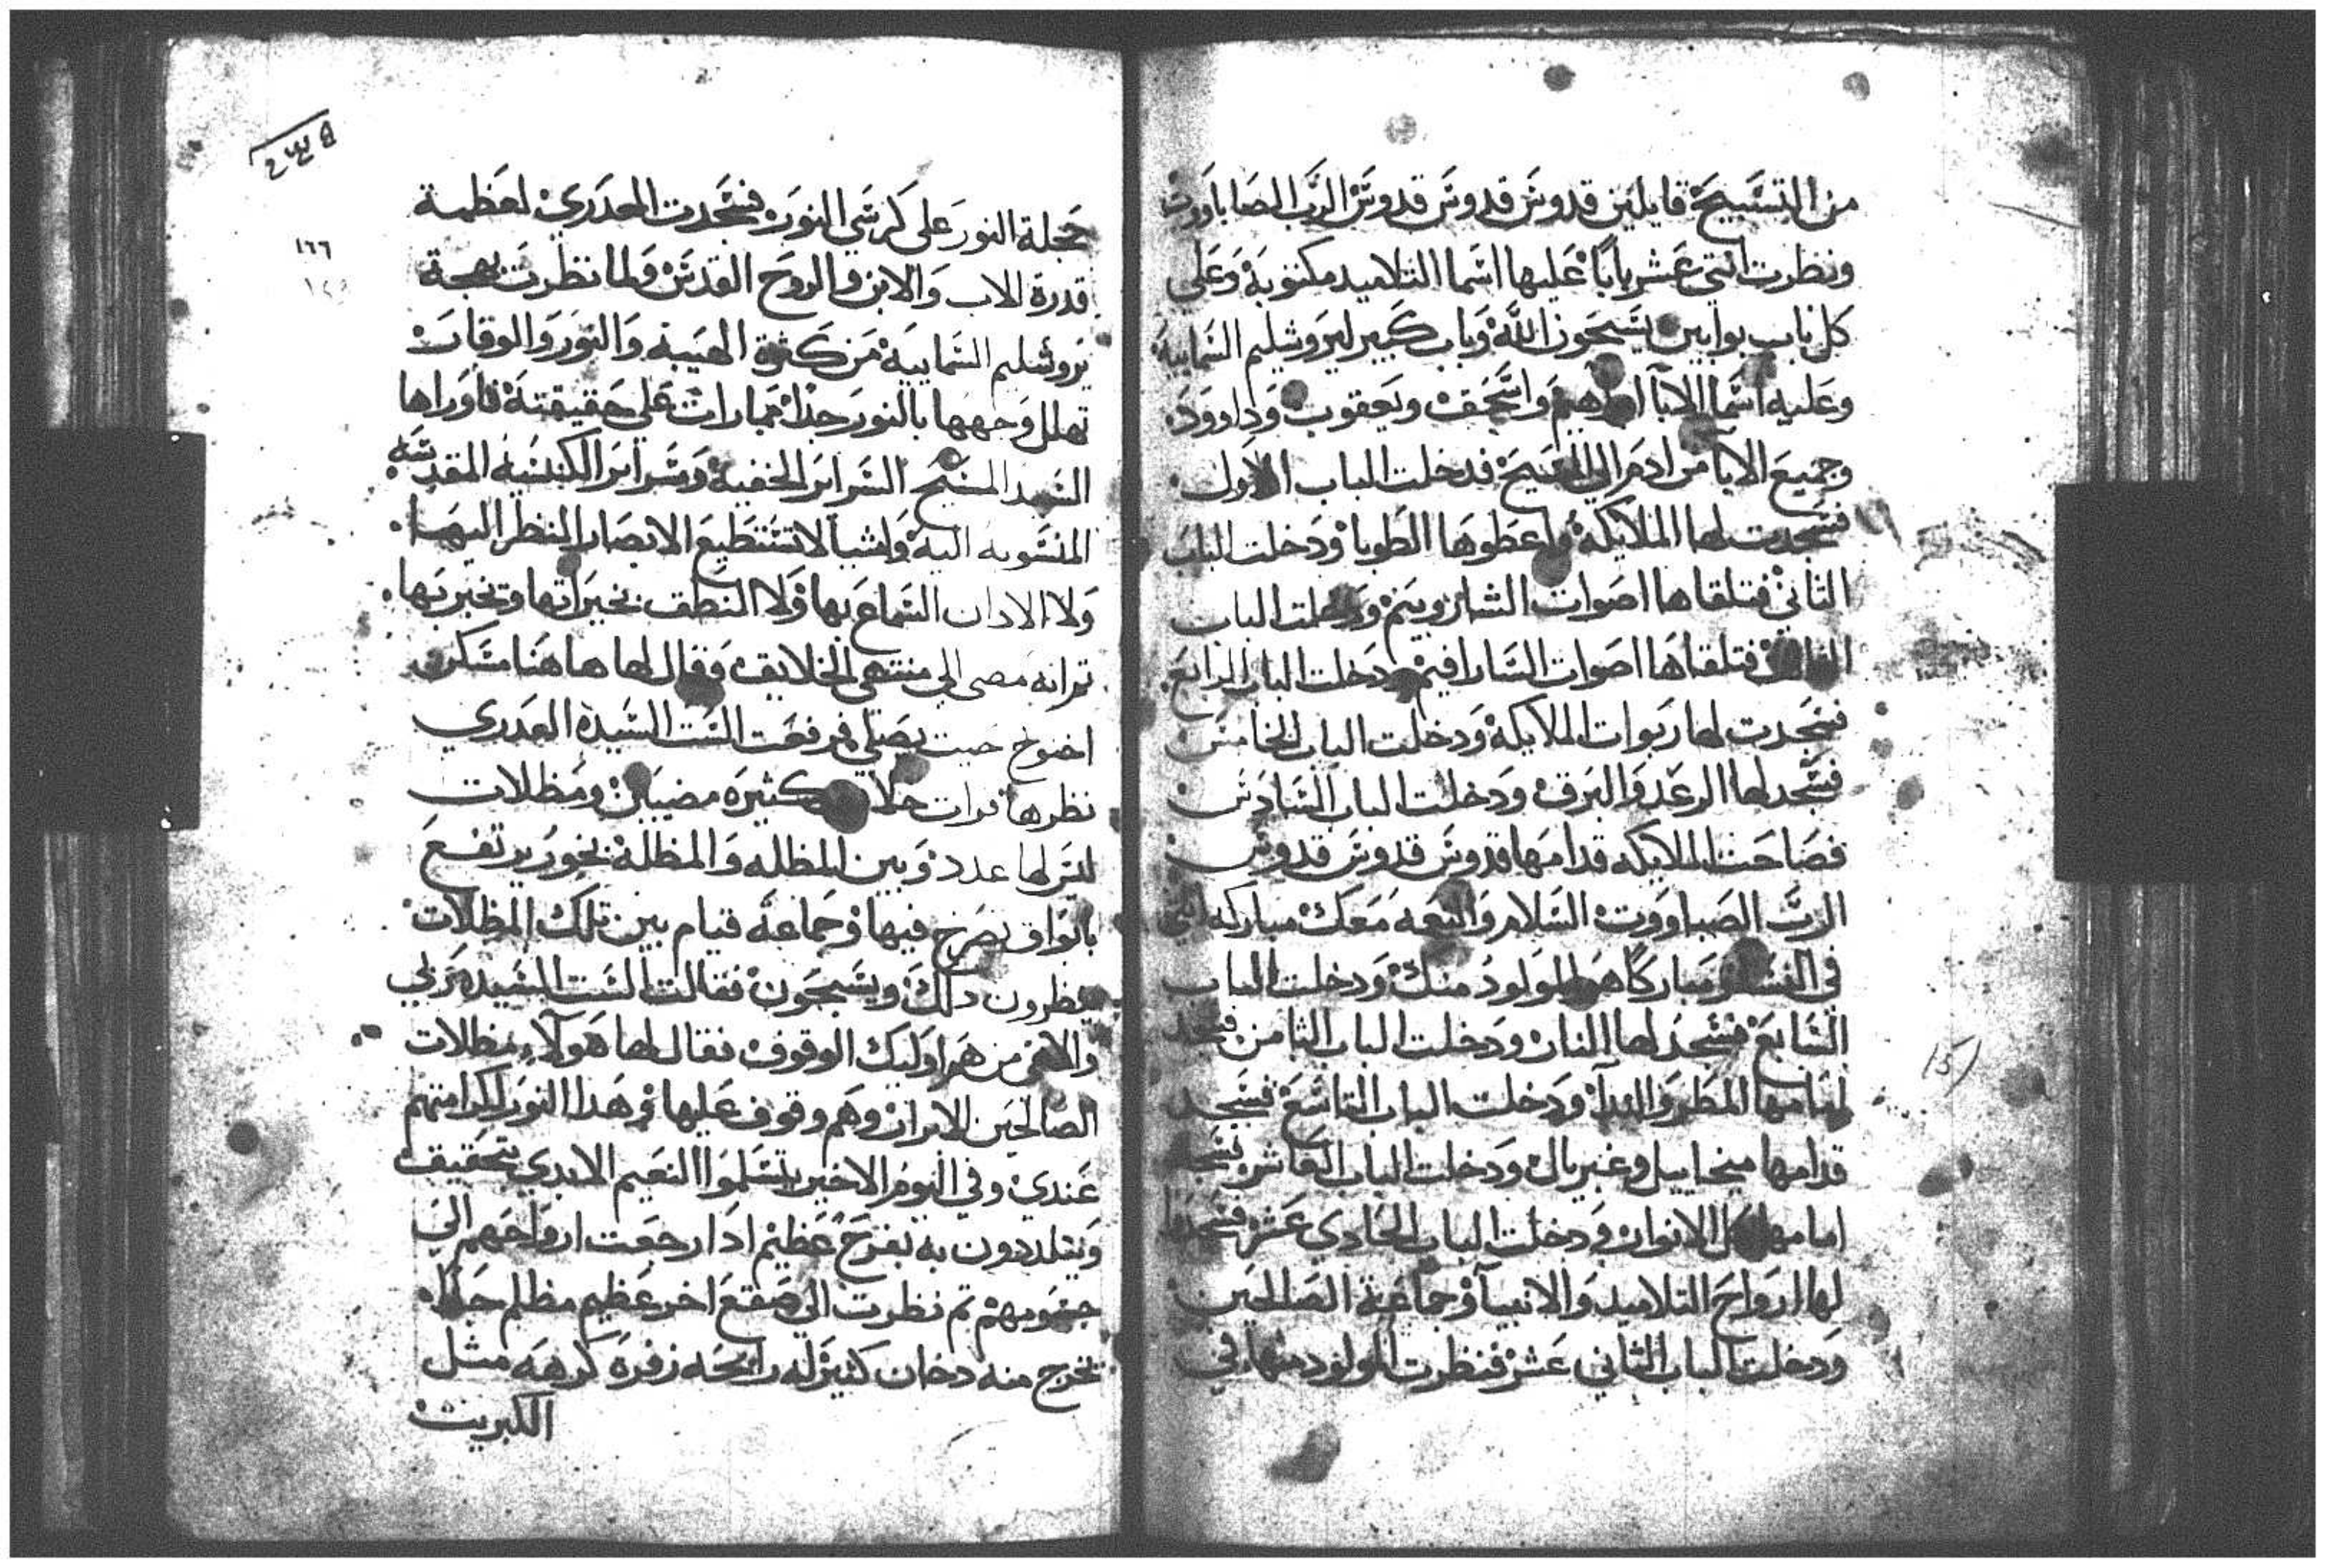 من التسبيح قايلين قدوس قدوس قدوس الرب الصاباووت
ونظرت اثني عشر بابا عليها اسما التلاميد مكتوبه وعلى
كل باب بوابين يسبحون الله وباب كبير ليروشليم السماييه
وعليه اسما الابا ابراهيم واسحق ويعقوب وداوود
وجميع الابا من ادم الي المسيح فدخلت الباب الاول
فسجدت لها الملايكه واعطوها الطوبا ودخلت الباب
الثاني فتلقاها اصوات الشاروبيم ودخلت الباب
الثالث فتلقاها اصوات السارافيم ودخلت الباب الرابع
فسجدت لها ربوات الملايكة ودخلت الباب الخامس
فسجد لها الرعد والبرق ودخلت الباب السادس
فصاحت الملايكه قدامها قدوس قدوس قدوس
الرب الصباووت السلام والنعمه معك مباركه انتي
في النسا ومباركا هو المولود منك ودخلت الباب
السابع فسجد لها النار ودخلت الباب الثامن فسجد
امامها المطر والندا ودخلت الباب التاسع فسجد
قدامها ميخاييل وغبريال ودخلت الباب العاشر فسجد
امامها كل الانوار ودخلت الباب الحادي عشر فسجدوا
لها ارواح التلاميد والانبيا وجماعة الصالحين
ودخلت الباب الثاني عشر فنظرت المولود منها في
١٦٦
حجلة النور على كرسي النور فسجدت العدري لعظمة
قدرة الاب والابن والروح القدس ولما نظرت بهجة
يروشليم السماييه من كثرة الهيبه والنور والوقار
تهلل وجهها بالنور جدا على حقيقته فاوراها
السيد المسيح السراير الخفية وسراير الكنيسه المقدسه
المنسوبه اليه واشيا لا تستطيع الابصار النظر اليها
ولا الادان السماع بها ولا النطق بخيراتها وتخبر بها
ثم انه مضى الي منتهى الخلايق وقال لها هاهنا مسكن
اخنوخ حيت يصلي فرفعت الست السيدة العدري
نظرها فرات كثيره مضيين ومظلات
ليس لها عدد وبين المظله والمظلة بخور يرتفع
بابواق تصرخ فيها وجماعه قيام بين تلك المظلات
ينظرون دلك ويسبحون فقالت الست السيده ربي
والاهي من هوا وليك الوقوف فقال لها هولاء مظلات
الصالحين الابرار وهم وقوف عليها وهدا النور لكرامتهم
عندي وفي اليوم الاخير يتسلموا النعيم الابدي بتحقيق
ويتلددون به بفرح عظيم ادا رجعت ارواحهم الي
جسومهم ثم نظرت الي صقع اخر عظيم مظلم جدا
تخرج منه دخان كثير له رايحه زفرة كرهه مثل
الكبريت